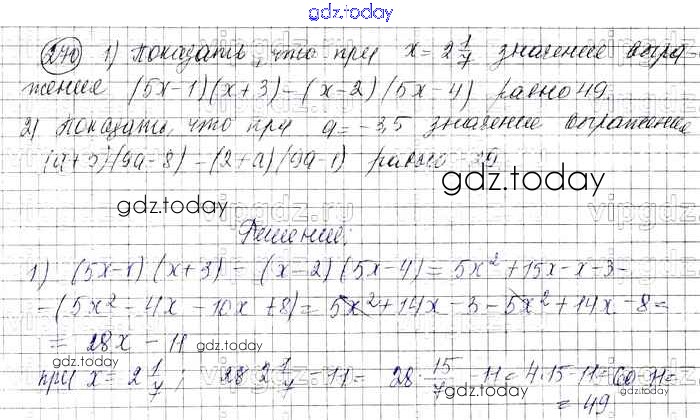 gdz.today
270) 1) Показать, что при x = 2 1/7 значение выра-
жение (5x-1)(x+3)-(x-2)(5x-4) равно 49.
2) Показать, что при a = -3,5 значение выражение
(a+3)(9a-8)-(2+a)(9a-1) равно
gdz.today
gdz.today
vipgdz.ru
Решение:
1) (5x-1)(x+3)-(x-2)(5x-4)=5x²+15x-x-3-
-(5x²-4x-10x+8)=5x²+14x-3-5x²+14x-8=
= 28x - 11
gdz.today
gdz.today
при x = 2 1/7; 28·2 1/7 - 11 = 28·15/7 - 11 = 4·15-11=60-11=
= 49
gdz.today
gdz.today